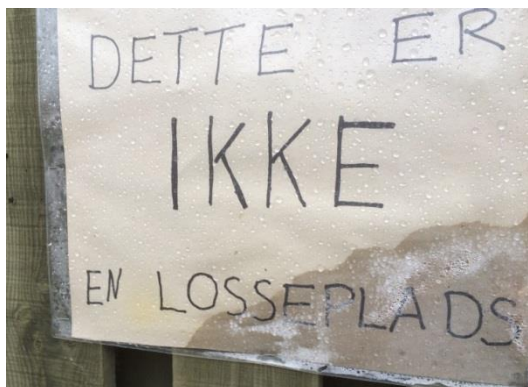 DETTE ER
IKKE
EN LOSSEPLADS